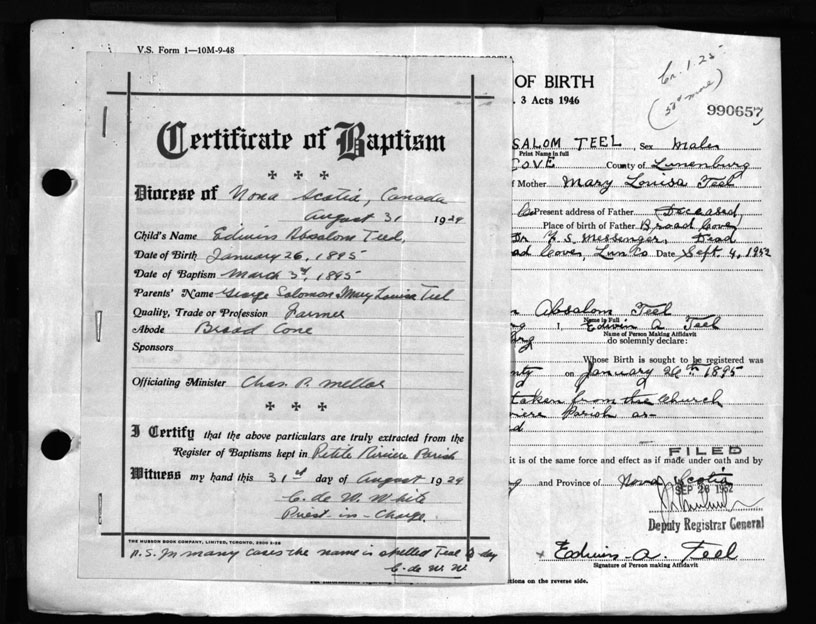 V.S. Form 1—10M-9-48
Certificate of Baptism
Diocese of Nova Scotia, Canada
August 31 1929
Child's Name Edwin Absalom Teel,
Date of Birth January 26, 1895
Date of Baptism March 3rd, 1895
Parents' Name George Salomon Mary Louisa Teel
Quality, Trade or Profession Farmer
Abode Broad Cove
Sponsors
Officiating Minister Chas. P. Mellor
I Certify that the above particulars are truly extracted from the
Register of Baptisms kept in Petite Riviere Parish
Witness my hand this 31st day of August 1929
C. de W. White
Priest-in-Charge.
THE HUNSON BOOK COMPANY, LIMITED, TORONTO.
P.S. In many cases the name is spelled Teal to day
C. de W. W.
OF BIRTH
3 Acts 1946
990657
SALOM TEEL, Sex Male
Print Name in full
COVE County of Lunenburg
f Mother Mary Louisa Teel
Present address of Father Deceased,
Place of birth of Father Broad Cove
Dr Messenger, Dead
ad Cove, Lun Co Date Sept. 4, 1952
n Absalom Teel
Name in Full
I, Edwin A Teel
Name of Person Making Affidavit
do solemnly declare:
Whose Birth is sought to be registered was
nty on January 26th 1895
taken from the church
riere Parish as-
d
it is of the same force and effect as if made under oath and by
FILED
and Province of Nova Scotia
SEP 26 1952
Deputy Registrar General
x Edwin A. Teel
Signature of Person making Affidavit
ctions on the reverse side.